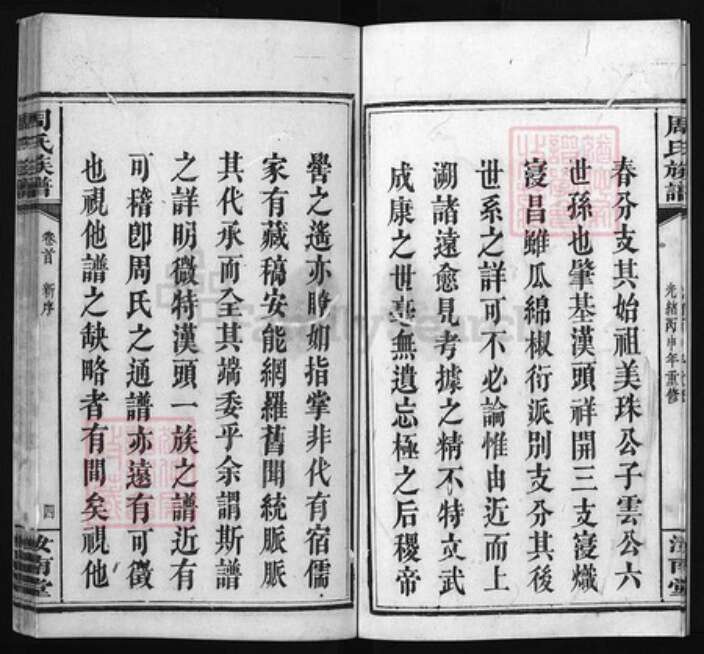 周氏族譜
光緒丙申年重修
汝南堂
春分支其始祖美珠公子雲公六
世孫也肇基漢頭祥開三支寖熾
寖昌雖瓜綿椒衍派別支分其後
世系之詳可不必論惟由近而上
溯諸遠愈見考據之精不特文武
成康之世毫無遺忘極之后稷帝
嚳之遙亦瞭如指掌非代有宿儒
家有藏稿安能網羅舊聞統脈脈
其代承而全其端委乎余謂斯譜
之詳明微特漢頭一族之譜近有
可稽卽周氏之通譜亦遠有可徵
也視他譜之缺略者有間矣視他
周氏族譜
卷首 新序
四
汝南堂
FamilySearch